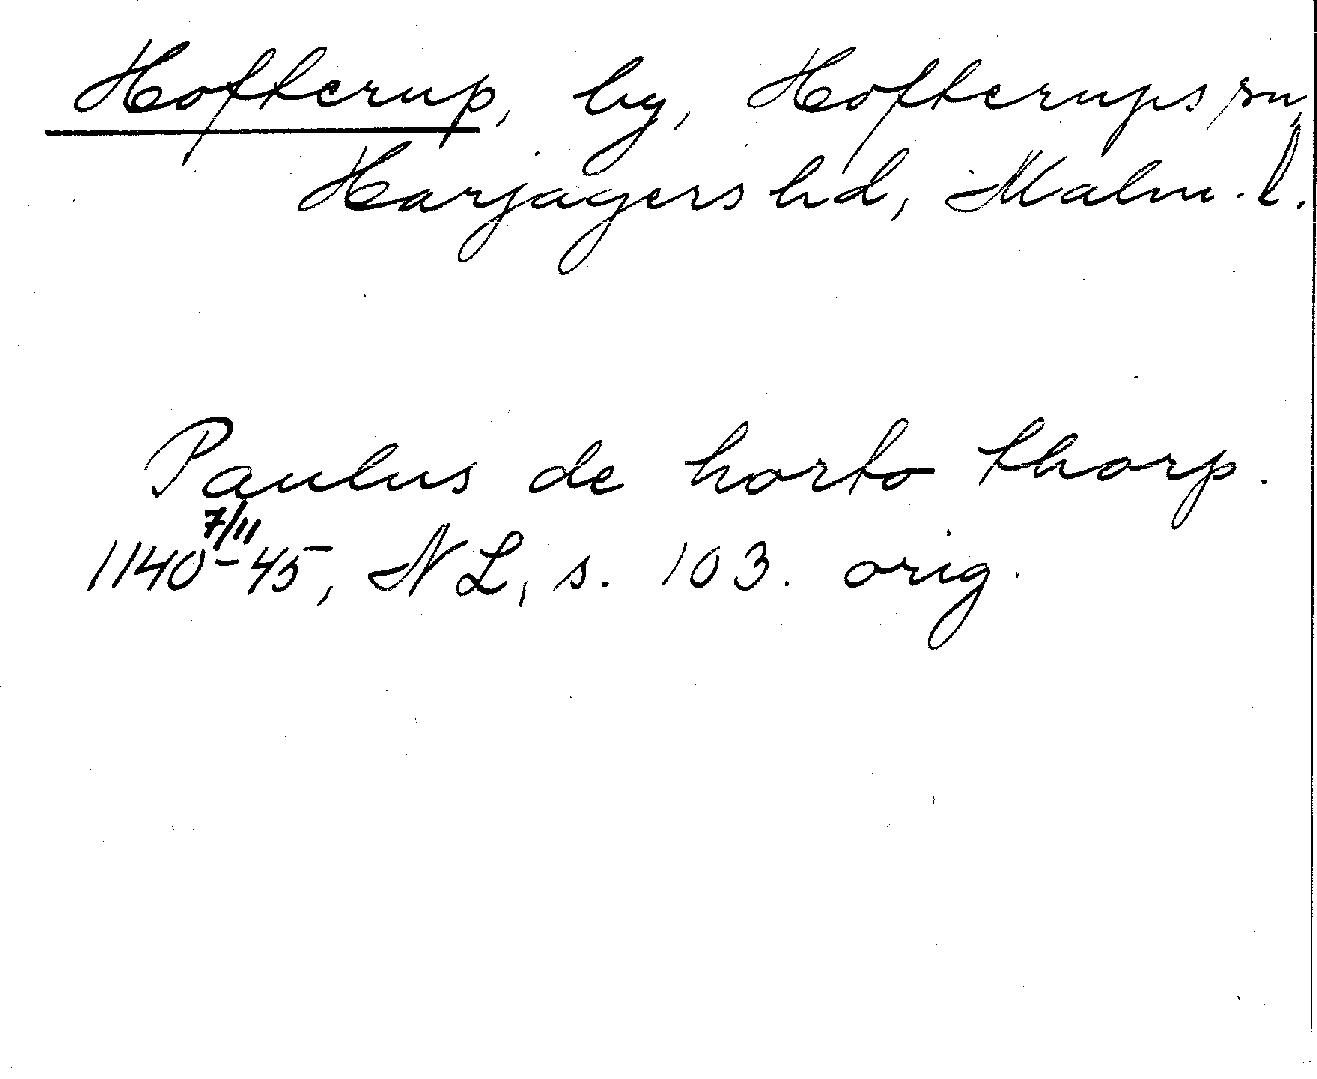 Hofterup, by, Hofterups sn,
Harjagers hd, Malm. l.
Paulus de horto thorp.
7/11
1140-45, NL, s. 103. orig.